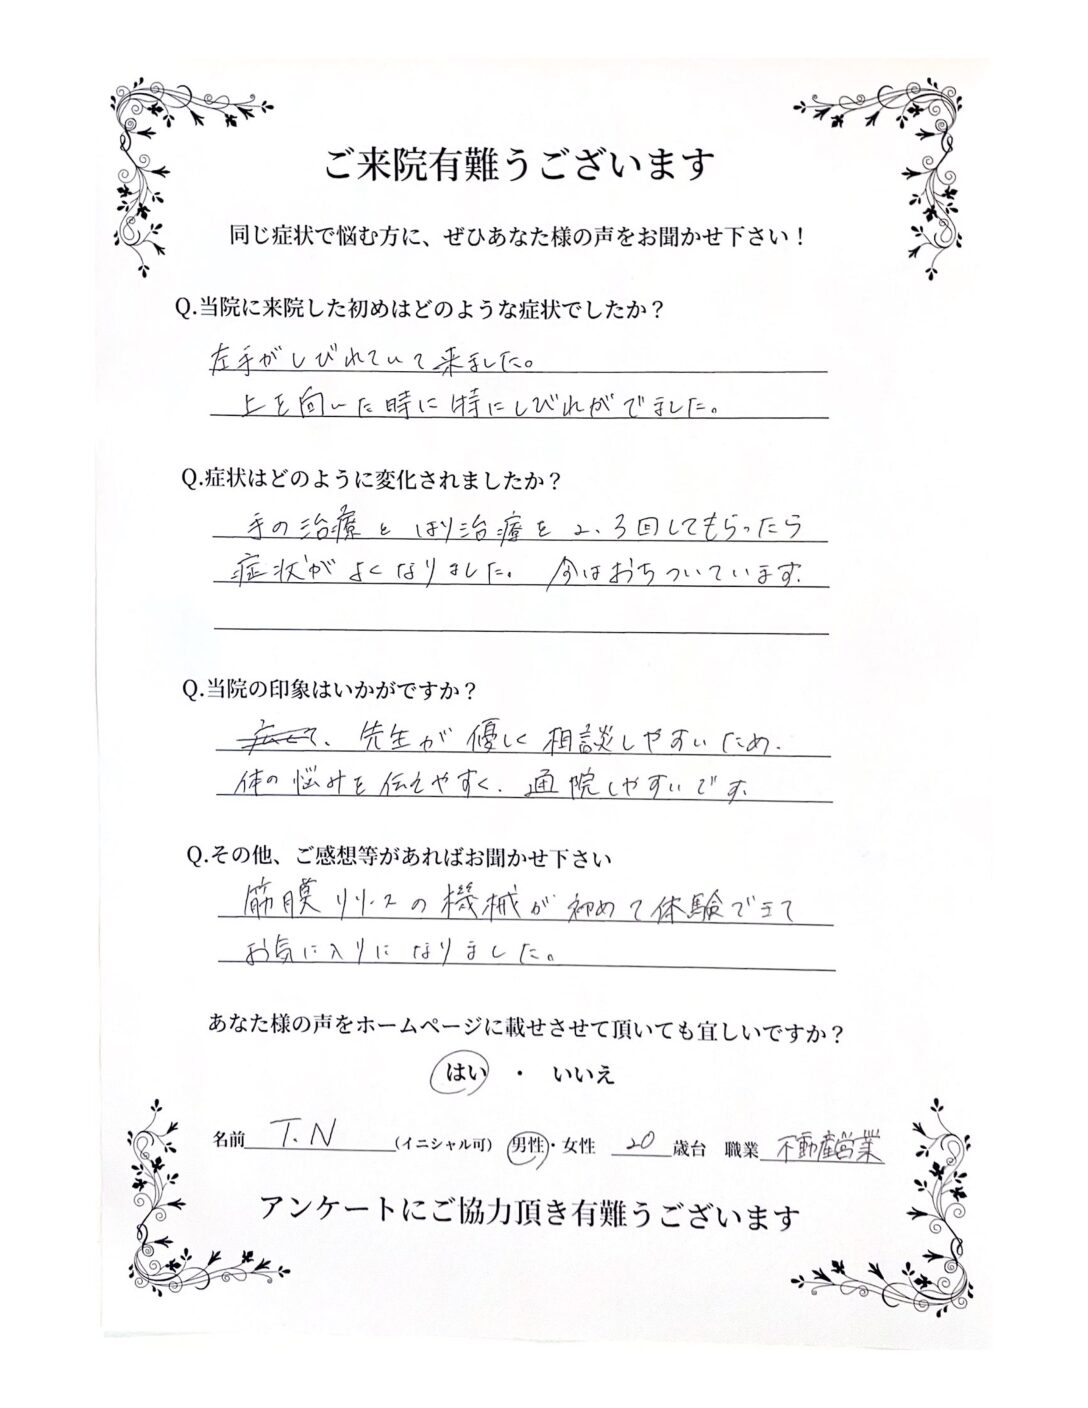 ご来院有難うございます
同じ症状で悩む方に、ぜひあなた様の声をお聞かせ下さい！
Q.当院に来院した初めはどのような症状でしたか？
左手がしびれていて来ました。
上を向いた時に特にしびれがでました。
Q.症状はどのように変化されましたか？
手の治療とはり治療を2、3回してもらったら
症状がよくなりました。今はおちついています。
Q.当院の印象はいかがですか？
、先生が優しく相談しやすいため、
体の悩みを伝えやすく、通院しやすいです。
Q.その他、ご感想等があればお聞かせ下さい
筋膜リリースの機械が初めて体験できて
お気に入りになりました。
あなた様の声をホームページに載せさせて頂いても宜しいですか？
はい ・ いいえ
名前 T.N (イニシャル可) 男性・女性 20 歳台 職業 不動産営業
アンケートにご協力頂き有難うございます